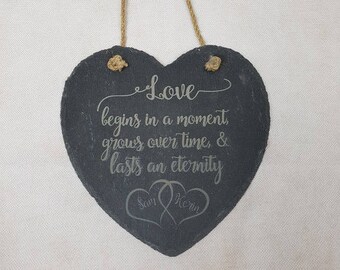 Love
begins in a moment,
grows over time, &
lasts an eternity
Sam